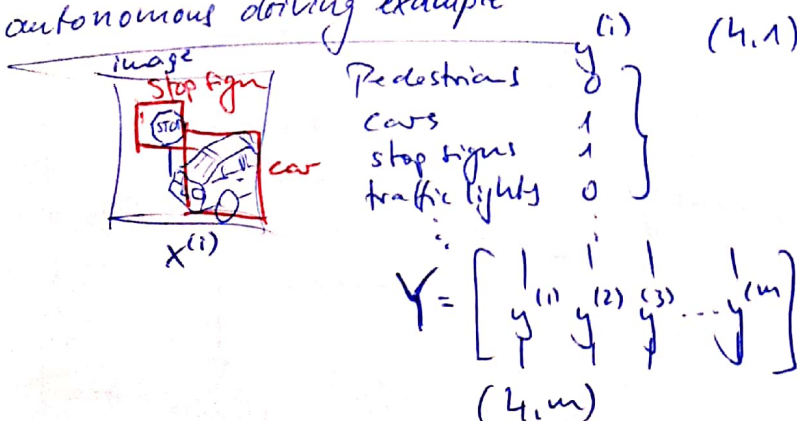 autonomous driving example
image
Stop sign
STOP
car
x^(i)
y^(i) (4,1)
Pedestrians 0
cars 1
stop signs 1
traffic lights 0
Y = [ y^(1) y^(2) y^(3) ... y^(m) ]
(4,m)